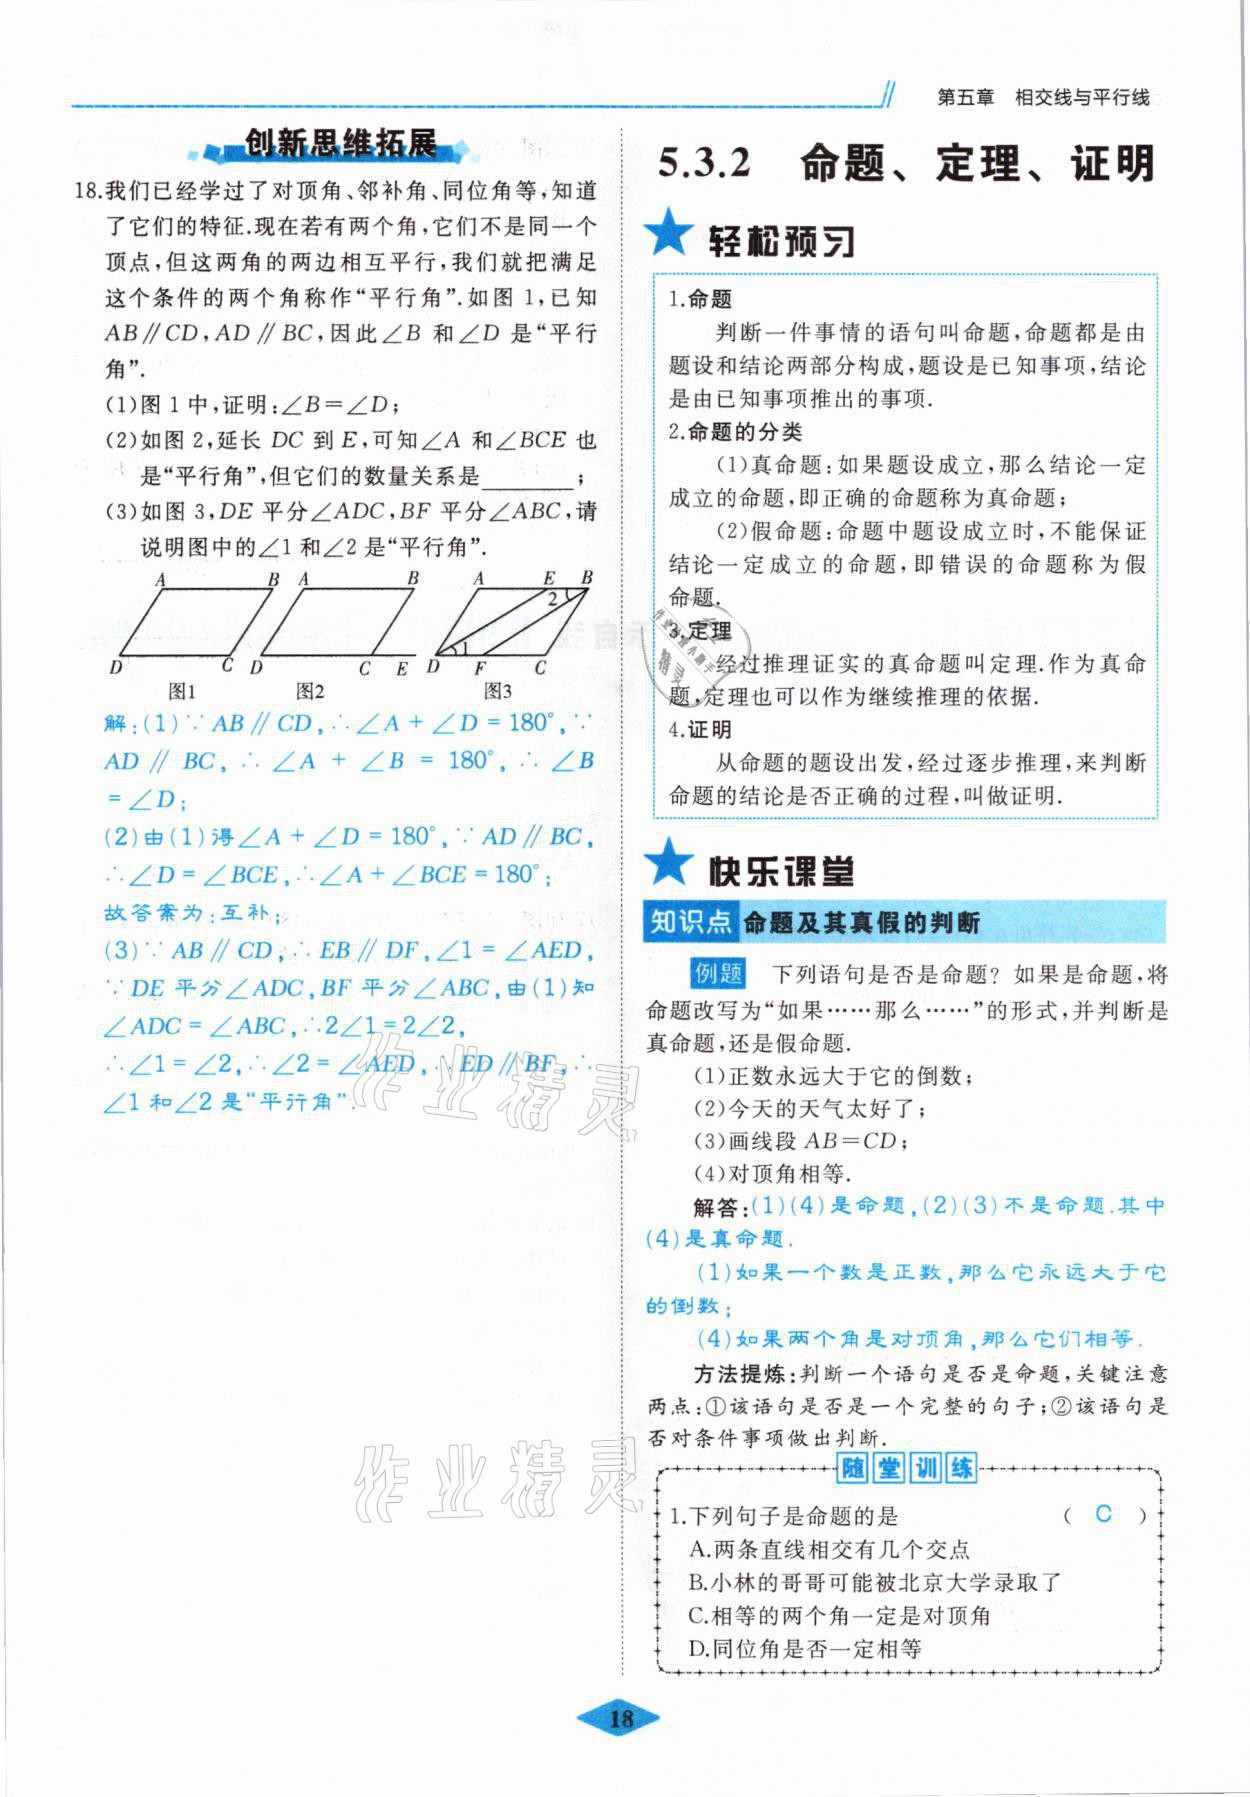 第五章　相交线与平行线
创新思维拓展
18.我们已经学过了对顶角、邻补角、同位角等,知道
了它们的特征.现在若有两个角,它们不是同一个
顶点,但这两角的两边相互平行,我们就把满足
这个条件的两个角称作“平行角”.如图 1,已知
AB∥CD,AD∥BC,因此∠B 和∠D 是“平行
角”.
(1)图 1 中,证明:∠B=∠D;
(2)如图 2,延长 DC 到 E,可知∠A 和∠BCE 也
是“平行角”,但它们的数量关系是________;
(3)如图 3,DE 平分∠ADC,BF 平分∠ABC,请
说明图中的∠1 和∠2 是“平行角”.
A B A B A E B
2
1
D C D C E D F C
图1 图2 图3
解:(1)∵AB∥CD,∴∠A+∠D=180°,∵
AD∥BC,∴∠A+∠B=180°,∴∠B
=∠D;
(2)由(1)得∠A+∠D=180°,∵AD∥BC,
∴∠D=∠BCE,∴∠A+∠BCE=180°;
故答案为:互补;
(3)∵AB∥CD,∴EB∥DF,∠1=∠AED,
∵DE 平分∠ADC,BF 平分∠ABC,由(1)知
∠ADC=∠ABC,∴2∠1=2∠2,
∴∠1=∠2,∴∠2=∠AED,∴ED∥BF,∴
∠1 和∠2 是“平行角”.
5.3.2　命题、定理、证明
轻松预习
1.命题
判断一件事情的语句叫命题,命题都是由
题设和结论两部分构成,题设是已知事项,结论
是由已知事项推出的事项.
2.命题的分类
(1)真命题:如果题设成立,那么结论一定
成立的命题,即正确的命题称为真命题;
(2)假命题:命题中题设成立时,不能保证
结论一定成立的命题,即错误的命题称为假
命题.
3.定理
经过推理证实的真命题叫定理.作为真命
题,定理也可以作为继续推理的依据.
4.证明
从命题的题设出发,经过逐步推理,来判断
命题的结论是否正确的过程,叫做证明.
快乐课堂
知识点 命题及其真假的判断
例题 下列语句是否是命题? 如果是命题,将
命题改写为“如果……那么……”的形式,并判断是
真命题,还是假命题.
(1)正数永远大于它的倒数;
(2)今天的天气太好了;
(3)画线段 AB=CD;
(4)对顶角相等.
解答:(1)(4)是命题,(2)(3)不是命题.其中
(4)是真命题.
(1)如果一个数是正数,那么它永远大于它
的倒数;
(4)如果两个角是对顶角,那么它们相等.
方法提炼:判断一个语句是否是命题,关键注意
两点:①该语句是否是一个完整的句子;②该语句是
否对条件事项做出判断.
随堂训练
1.下列句子是命题的是 ( C )
A.两条直线相交有几个交点
B.小林的哥哥可能被北京大学录取了
C.相等的两个角一定是对顶角
D.同位角是否一定相等
18
作业精灵
作业精灵